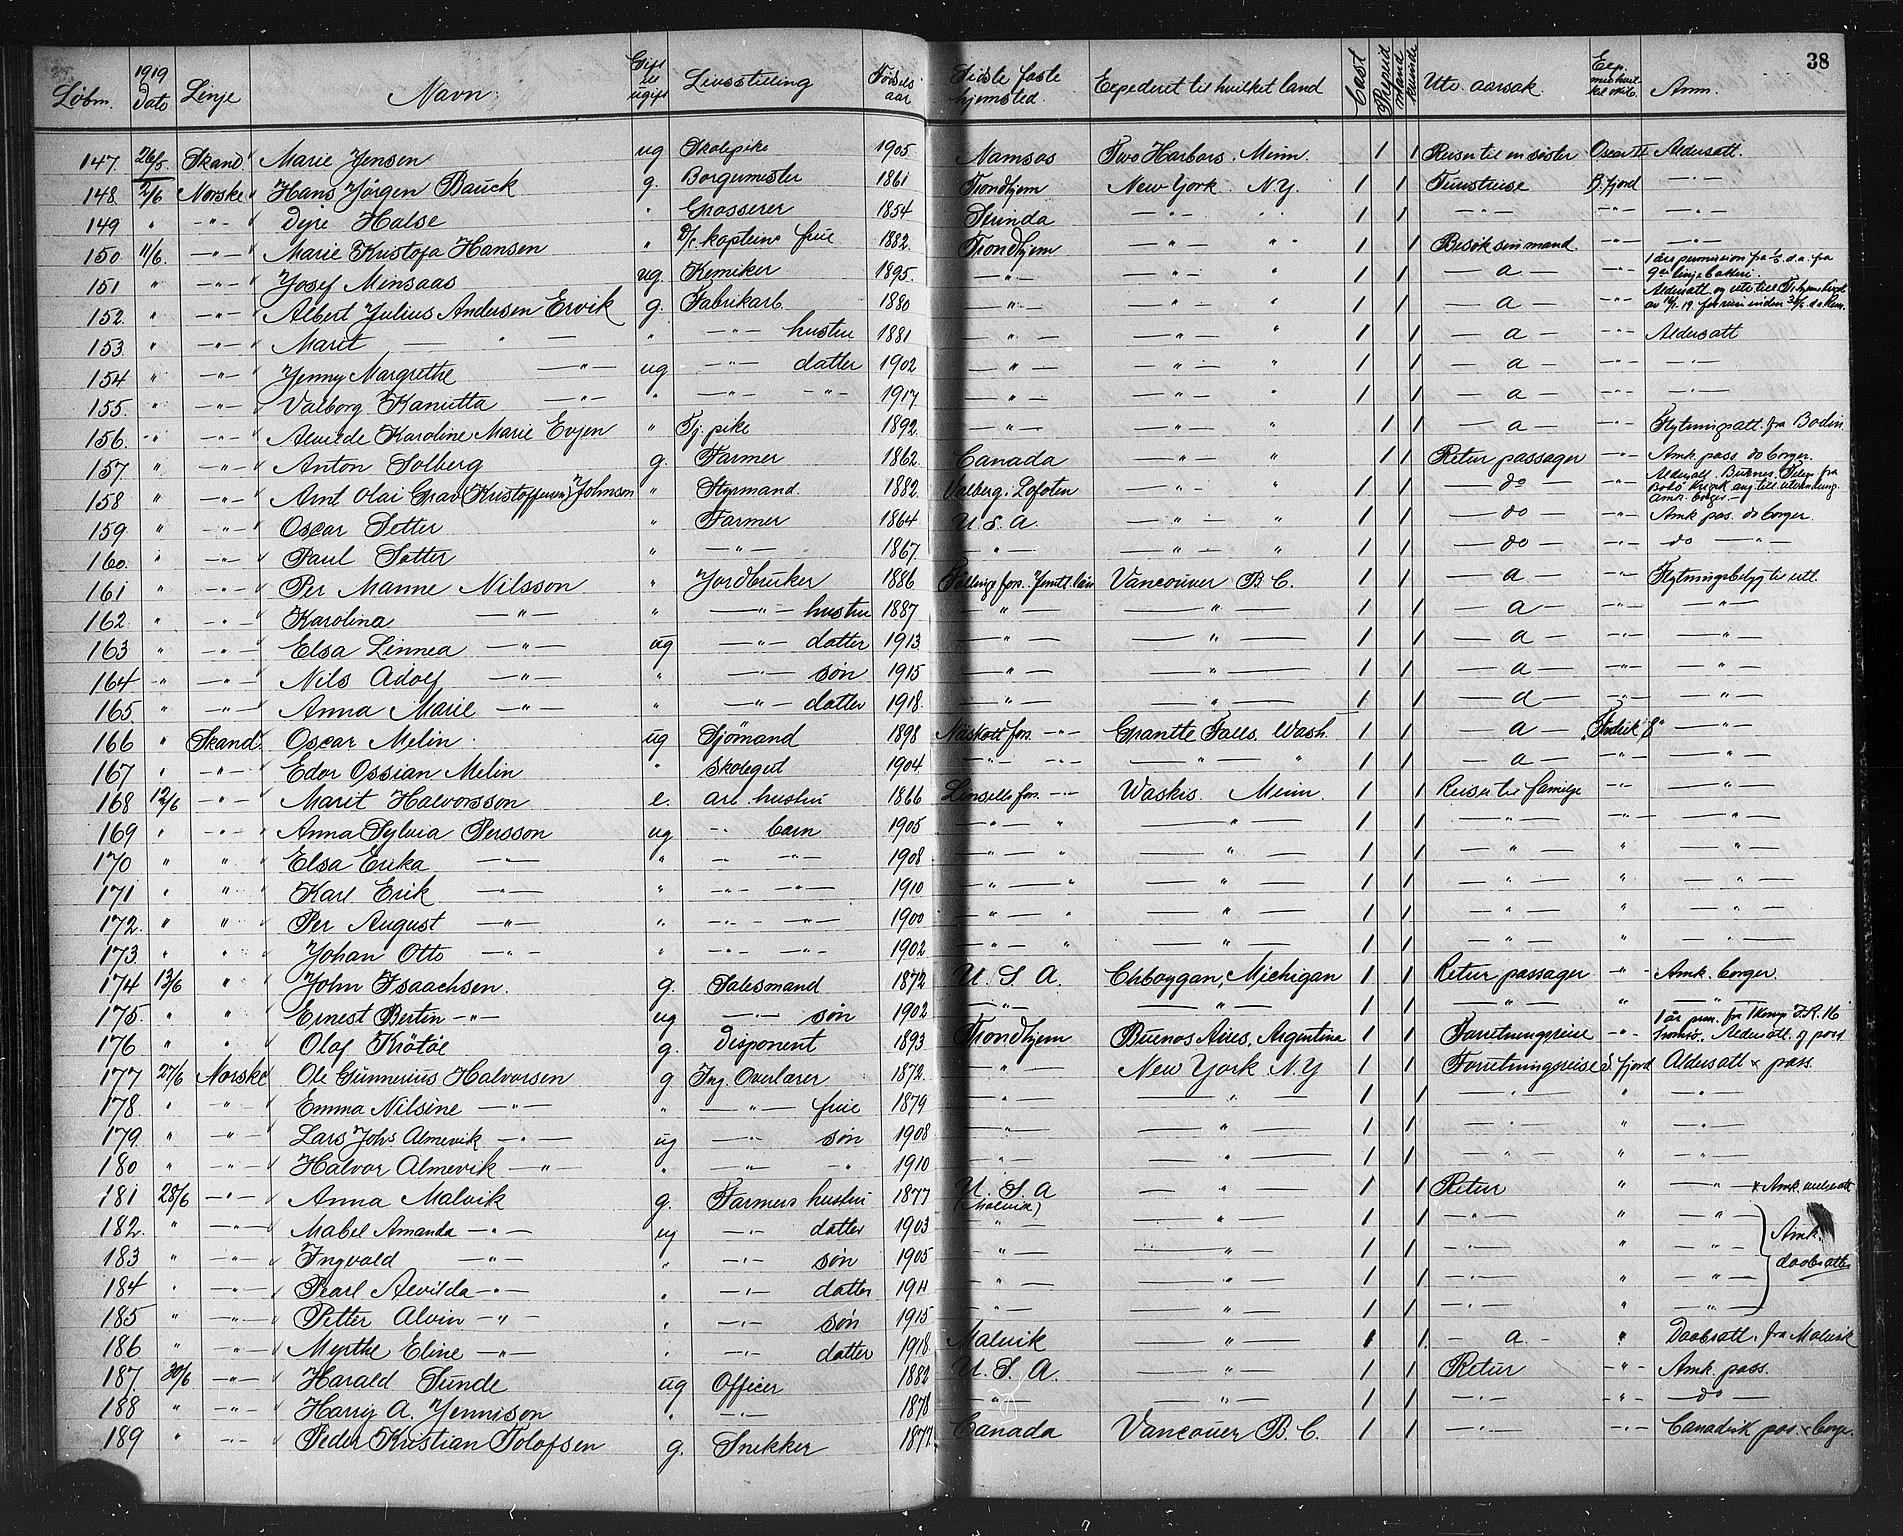 38
Löbnr. 1919 Dato Linje Navn. Gift el. ugift Livsstilling Fødsels aar Sidste faste hjemsted. Expederet til hvilket land Cash Prepaid Mand Kvinde Utv. aarsak. Exp. med hvilket skib. Anm.
147. 26/5 Skand Marie Jensen ug Skolepike 1905 Namsos Two Harbors. Minn. 1 1 Reiser til en söster Oscar II Aldersatt.
148. 2/6 Norske Hans Jörgen Bauck g. Borgermester 1861 Trondhjem New York N.Y. 1 1 Turistreise B. fjord — " —
149 " — " — Dyre Halse " Grosserer 1854 Strinda — " — " " 1 1 — " — — " — — " —
150 11/6. — " — Marie Kristofa Hansen " D/s kapteins frue 1882. Trondhjem — " — " " 1 1 Besök sin mand — " — — " —
151 " — " — Josef Minsaas ug. Kemiker 1895. — " — — " — " 1 1 — a — — " — 1 års permission fra
152. " — " — Albert Julius Andersen Ervik g. Fabrikarb. 1880 — " — — " — " 1 1 — a — — " — Aldersatt. og
153 " — " — Marit — " — " — " — hustru 1881 — " — — " — " 1 1 — a — — " — Aldersatt
154 " — " — Jenny Margrethe — " — ug — " — datter 1902 — " — — " — " 1 1 — a — — " — — " —
155. " — " — Valborg Kanutta — " — " — " — — " — 1917 — " — — " — " 1 1 — a — — " — — " —
156. " — " — Alvilde Karoline Marie Evjen " Tj. pike 1892. — " — — " — " 1 1 — a — — " — Flytningsatt. fra Bodin
157. " — " — Anton Solberg g. Farmer 1862. Canada — " — " 1 1 Retur passager — " — Amk. pass. do borger.
158 " — " — Arnt Olai Grav (Kristoffersen) Johnson " Styrmand 1882. Valberg. Lofoten — " — " 1 1 — do — — " — Aldersatt. Buknes.
amk. borger —
159. " — " — Oscar Setter " Farmer 1864 U. S. A. — " — " 1 1 — do — — " — Amk. pas. do borger.
160. " — " — Paul Sotter " — " — 1867. — " — — " — " 1 1 — do — — " — do — " —
161 " — " — Per Manne Nilsson " Jordbruker 1886 fors. Jemtl. län Vancouver B C. 1 1 — a — — " — Flytningsbetyg til utl.
162. " — " — Karolina — " — " — " — hustru 1887 — " — — " — 1 1 — a — — " — — " —
163 " — " — Elsa Linnea — " — ug — " — datter 1913 — " — — " — 1 1 — a — — " — — " —
164 " — " — Nils Adolf — " — " — " — sön 1915 — " — — " — 1 1 — a — — " — — " —
165. " — " — Anna Marie — " — " — " — datter 1918. — " — — " — 1 1 — a — — " — — " —
166 " Skand. Oscar Melin ug Sjömand 1898 Näskott fors. — " — Granite Falls. Wash. 1 1 — a — "Fredrik 8" — " —
167 " — " — Edor Ossian Melin " skolegut 1904. — " — — " — — " — " 1 1 — a — — " — — " —
168 12/6 — " — Marit Halvorsson e. arb. hustru 1866 Linsells fors. — " — Waskis. Minn. 1 1 Reiser til familje — " — — " —
169 " — " — Anna Sylvia Persson ug — " — barn 1905 — " — " — " — 1 1 — " — — " — — " —
170 " " Elsa Erika — " — " — " — — " — 1908 — " — — " — 1 1 — " — " — " —
171 " " Karl Erik — " — " — " — — " — 1910 — " — " — " — 1 1 — " — " — " —
172. " " Per August — " — " — " — — " — 1900 — " — " — " — 1 1 — " — " — " —
173 " " Johan Otto — " — " — " — — " — 1902 — " — " — " — 1 1 — " — " — " —
174 13/6 " John Isaachsen. g. Salesmand 1872 U. S. A. Chboygan, Michigan 1 1 Retur passager — " — Amk. borger.
175. " " Ernest Bertin — " — ug — " — sön 1902 — " — — " — 1 1 — " — " — " —
176 " " Olaf Krötöe g. Disponent 1893 Trondhjem Buenos Aires, Argentina 1 1 Forretningsreise — " — 1 år perm. fra I.R. 16 Aldersatt. og pass
177 27/6 Norske Ole Gunnerius Halvorsen g Ing. Overlærer 1872. — " — New York N.Y 1 1 Forretningsreise S. fjord Aldersatt × pass.
178. " " Emma Nilsine — " — " — " — frue 1879 — " — — " — 1 1 — " — " — " —
179. " — " — Lars Johs Almevik — " — ug — " — sön 1908 — " — — " — 1 1 — " — " — " —
180 " — " — Halvor Almevik — " — " — " — — " — 1910 — " — — " — 1 1 — " — " — " —
181 28/6 — " — Anna Malvik g. Farmers hustru 1877 U. S. A (Malvik) — " — 1 1 Retur " — " — × Amk.
182. " — " — Mabel Amanda — " — ug — " — datter 1903 — " — — " — 1 1 — " — " — " —
183 " — " — Ingvald — " — " — " — sön 1905 — " — — " — 1 1 — " — " — " — Amk. daabsatter
184 " — " — Pearl Alvilda — " — " — " — datter 1911 — " — — " — 1 1 — " — " — " —
185 " — " — Petter Alvin — " — " — " — sön 1915 — " — — " — 1 1 — " — " — " —
186 " — " — Myrthe Eline — " — " — " — datter 1918. Malvik — " — 1 1 — a — " Daabsatt. fra Malvik
187. 30/6 — " — Harald Sunde ug Officer 1882 U. S. A. — " — 1 1 Retur — " — Amk. pass.
188 " — " — Harry A. Jennison " — " — 1878 — " — — " — 1 1 — " — — " — — do —
189 " — " — Peder Kristian Tolofsen g. Snekker 1877 Canada Vancouver B. C. 1 1 — " — — " — Canadisk pas. × borger.